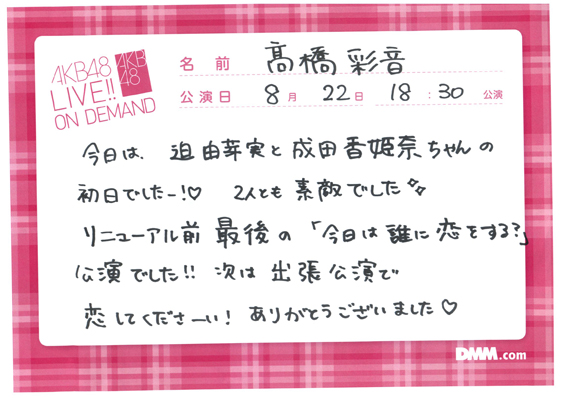 AKB48
LIVE!!
ON DEMAND
AKB
48
名前 髙橋彩音
公演日 8月 22日 18:30 公演
今日は、迫由芽実と成田香姫奈ちゃんの
初日でしたー!♡ 2人とも素敵でした
リニューアル前最後の「今日は誰に恋をする?」
公演でした!! 次は出張公演で
恋してくださーい! ありがとうございました♡
DMM.com